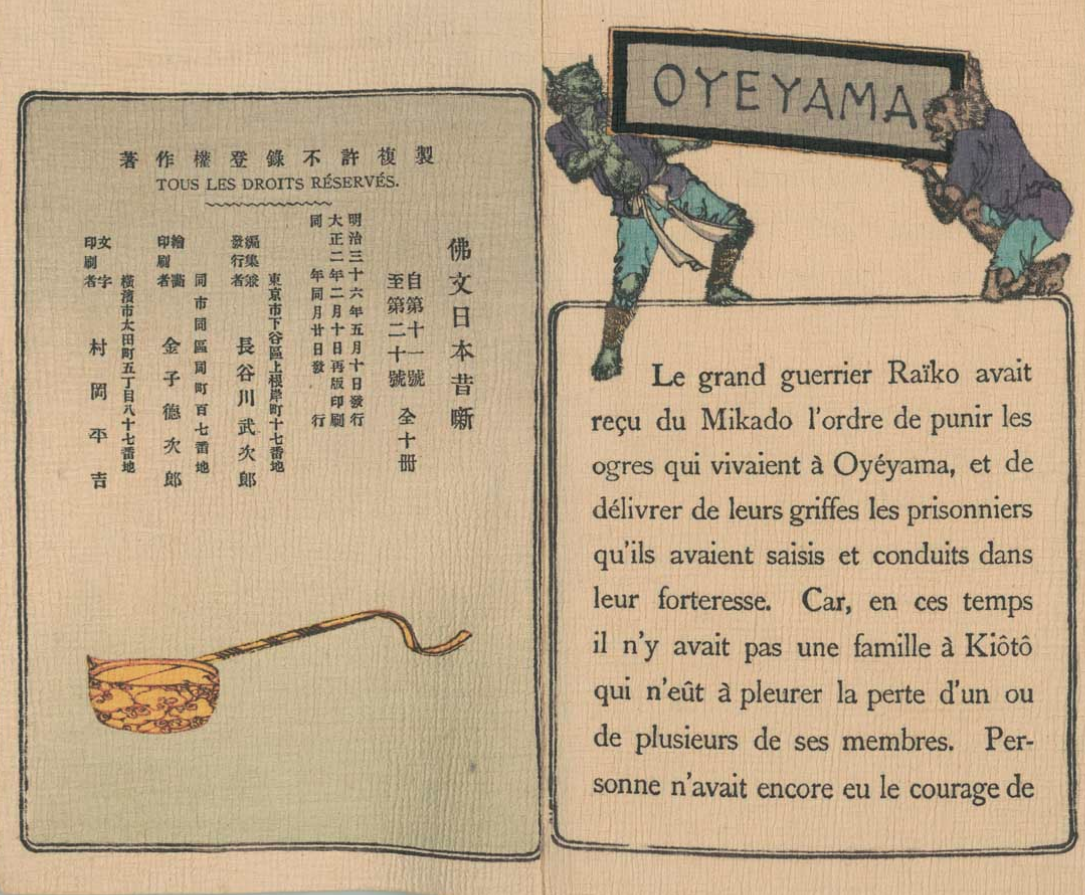 著作權登錄不許複製
TOUS LES DROITS RÉSERVÉS.
佛文日本昔噺
自第十一號
至第二十號 全十冊
明治三十六年五月十日發行
大正二年二月十日再版印刷
同年同月廿日發行
東京市下谷區上根岸町十七番地
編集兼發行者 長谷川武次郎
同市同區同町百七番地
繪畵印刷者 金子德次郎
橫濱市太田町五丁目八十七番地
文字印刷者 村岡平吉
OYEYAMA
Le grand guerrier Raïko avait
reçu du Mikado l'ordre de punir les
ogres qui vivaient à Oyéyama, et de
délivrer de leurs griffes les prisonniers
qu'ils avaient saisis et conduits dans
leur forteresse. Car, en ces temps
il n'y avait pas une famille à Kiôtô
qui n'eût à pleurer la perte d'un ou
de plusieurs de ses membres. Per-
sonne n'avait encore eu le courage de